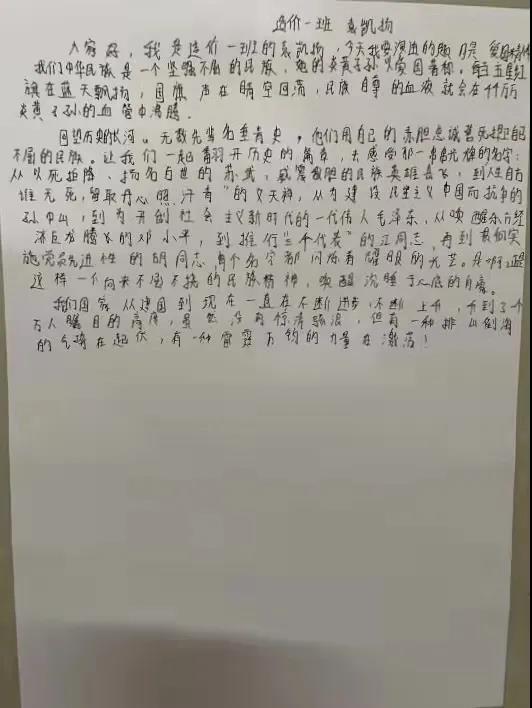 造价一班 袁凯扬
大家好，我是造价一班的袁凯扬，今天我要演进的题目是 爱国精神
我们中华民族是一个坚强不屈的民族，炎黄子孙以爱国著称，每当五星红
旗在蓝天飘扬，国旗声在晴空回荡，民族自尊的血液就会在千千万万
炎黄子孙的血管中沸腾．
回望历史的长河。无数先辈名垂青史，他们用自己的赤胆忠诚誓死捍卫自己
不屈的民族。让我们一起翻开历史的篇章，去感受那一串串光辉的名字：
从以死拒降、扬名百世的苏武，威震敌胆的民族英雄岳飞，到"人生自古
谁无死，留取丹心照汗青"的文天祥，从为建设民主主义中国而抗争的
孙中山，到为开创社会主义新时代的一代伟人毛泽东，从唤醒东方经
济巨龙腾飞的邓小平，到推行"三个代表"的江同志，再到贯彻实
施党员先进性的胡同志，每个名字都闪烁着耀眼的光芒。是啊，
这样一个向来不屈不挠的民族精神，唤醒沉睡于心底的自豪。
我们国家从建国到现在一直在不断进步，不断上升，升到了一个
万人瞩目的高度，虽然没有惊涛骇浪，但有一种排山倒海
的气势在起伏，有一种雷霆万钧的力量在激荡！